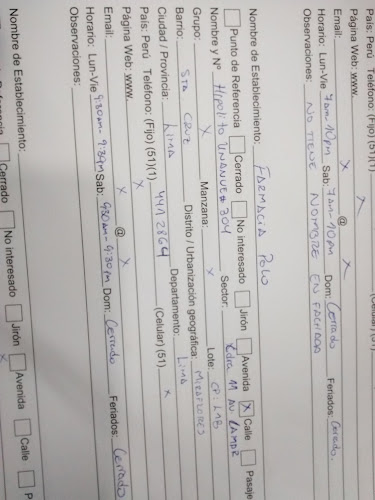 País: Perú Teléfono: (Fijo) (51)(1) X (Celular) (51)
Página Web: www. X
Email: X @ X
Horario: Lun-Vie 7am-10pm Sab: 7am-10pm Dom: Cerrado Feriados: Cerrado.
Observaciones: NO TIENE NOMBRE EN FACHADA
Nombre de Establecimiento: FARMACIA POLO
Punto de Referencia Cerrado No interesado Jirón Avenida X Calle Pasaje
Nombre y Nº Hipolito UNANUE # 304 Sector: Cdra 11 AV.
Grupo: X Manzana: X Lote: CP: L18
Barrio: STA CRUZ Distrito / Urbanización geográfica: MIRAFLORES
Ciudad / Provincia: Lima Departamento: Lima
País: Perú Teléfono: (Fijo) (51)(1) 441 2864 (Celular) (51) X
Página Web: www. X
Email: X @ X
Horario: Lun-Vie 9:30am-9:30pm Sab: 9:30am-9:30pm Dom: Cerrado Feriados: Cerrado
Observaciones:
Nombre de Establecimiento:
Cerrado No interesado Jirón Avenida Calle P